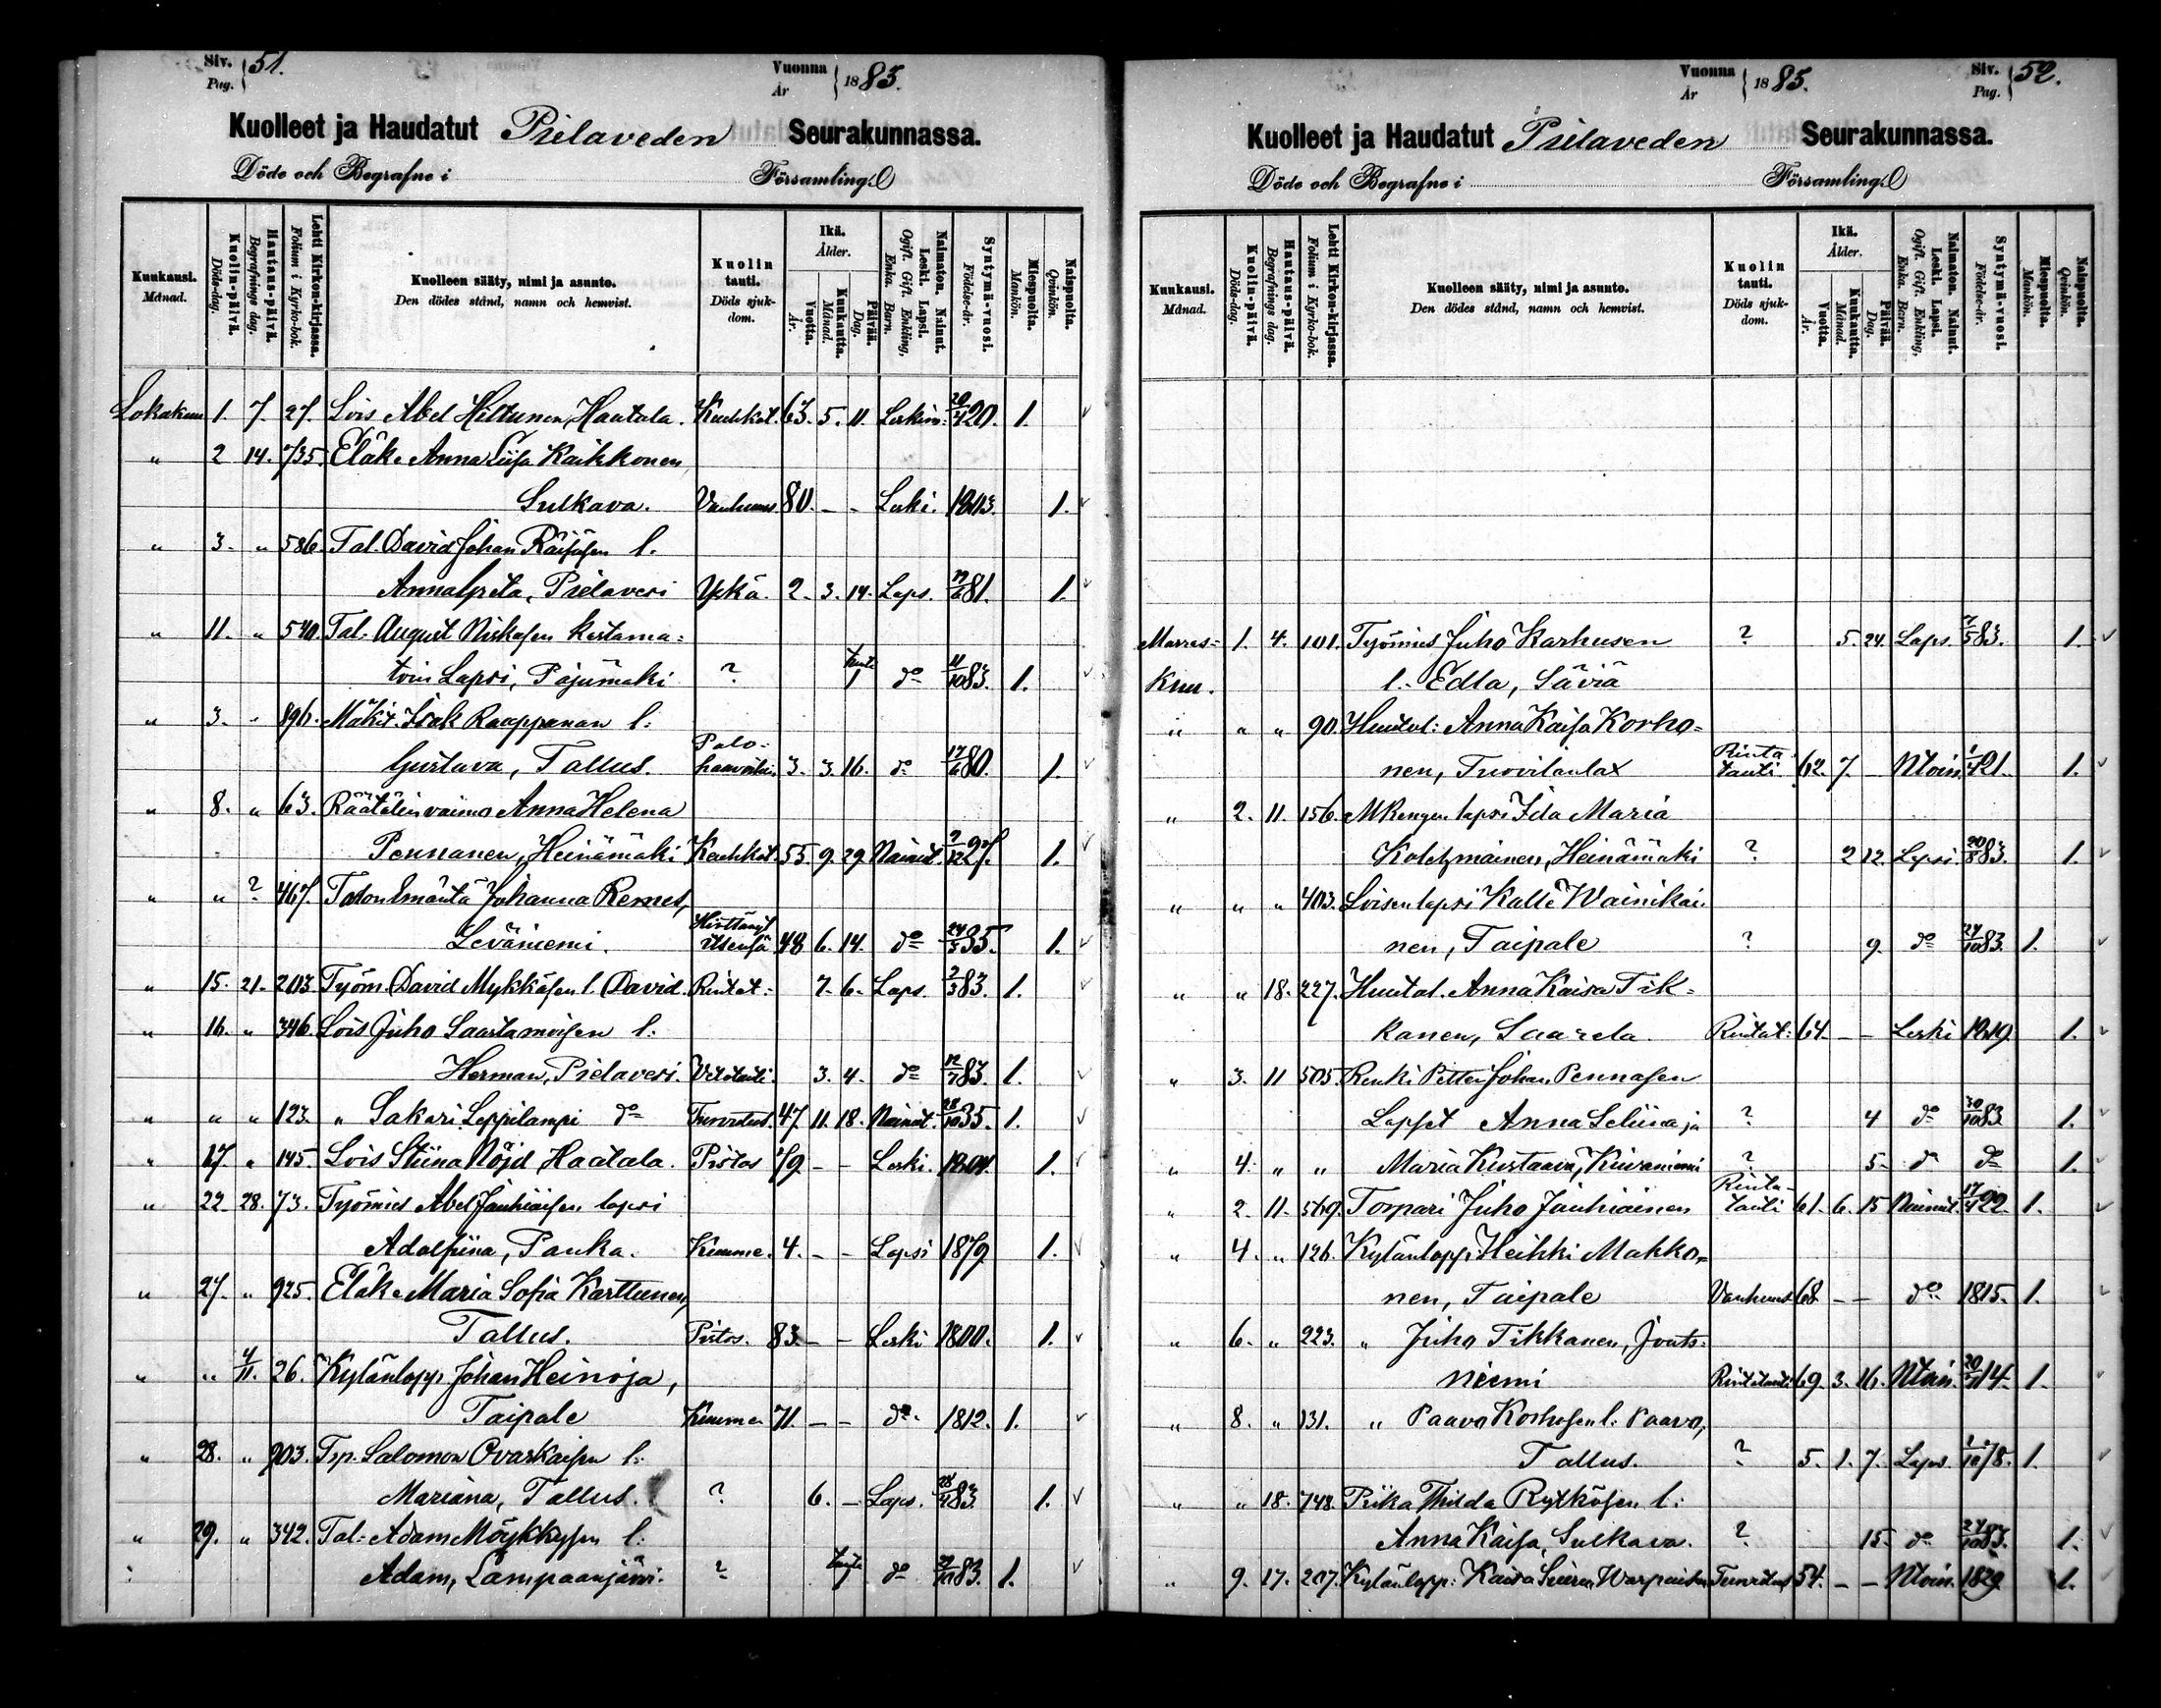 Siv. Pag. 51.
Vuonna År 1883.
Kuolleet ja Haudatut Pielaveden Seurakunnassa.
Döde och Begrafne i Församling.
Kuukausi. Månad.
Kuolin-päivä. Döds-dag.
Hautaus-päivä. Begrafnings dag.
Lehti Kirkon-kirjassa. Folium i Kyrko-bok.
Kuolleen sääty, nimi ja asunto. Den dödes stånd, namn och hemvist.
Kuolin tauti. Döds sjuk-dom.
Ikä. Ålder.
Vuotta. År.
Kuukautta. Månad.
Päivää. Dag.
Naimaton. Nainut. Leski. Lapsi. Ogift. Gift. Enkling, Enka. Barn.
Syntymä-vuosi. Födelse-år.
Miespuolta. Mankön.
Naispuolta. Qvinkön.
Lokakuu 1. 7. 27. Lois Abel Hiltunen, Haatala. Keuhkot. 63. 5. 11. Leskim. 20/4 20. 1.
" 2 14. 735. Eläk. Anna Liisa Kaikkonen
Sulkava. Vanhuus 80. - - Leski. 1803. 1.
" 3. " 586. Tal. David Johan Räisäsen l.
Anna Greta, Pielavesi Yskä. 2. 3. 14. Laps. 19/6 81. 1.
" 11. " 540. Tal. August Niskasen kastama=
toin Lapsi, Pajumäki ? 1 do 11/10 83. 1.
" 3. " 896. Mäkit. Isak Raappanan l:
Gustava, Tallus. Palo-haavoihin. 3. 3. 16. do 17/6 80. 1.
" 8. " 63. Räätälin vaimo Anna Helena
Pennanen, Heinämäki Keuhkot. 55. 9. 29. Nainut. 9/12 27. 1.
" " ? 467. Talon Emäntä Johanna Remes,
Leväniemi. Hirttänyt itsensä 48 6. 14. do 24/3 35. 1.
" 15. 21. 203. Työm. David Mykkäsen l. David. Rintat: 7. 6. Laps. 9/3 83. 1.
" 16. " 346. Lois Juho Saastamoisen l:
Herman, Pielavesi. Vetotauti. 3. 4. do 12/7 83. 1.
" " " 123. " Sakari Leppilampi do 47 11. 18. Nainut. 28/10 35. 1.
" 17. " 145. Lois Stiina Nöjd Haatala. Pistos 79. - - Leski. 1804. 1.
" 22 28. 73. Työmies Abel Jauhiaisen lapsi
Adolfiina, Panka. Kuume. 4. - - Lapsi 1879. 1.
" 27. " 925. Eläk. Maria Sofia Karttunen,
Tallus. Pistos. 83. - - Leski 1800. 1.
" " 4/11. 26. Kylänlopp. Johan Heinoja,
Taipale Kuume 71. - - do. 1812. 1.
" 28. " 903. Trp. Salomon Ovaskaisen l:
Mariana, Tallus. ? 6. - Laps. 28/4 83 1.
" 29. " 342. Tal: Adam Möykkysen l:
Adam, Lampaanjärvi. ? do 83. 1.
Siv. Pag. 52.
Vuonna År 1883.
Kuolleet ja Haudatut Pielaveden Seurakunnassa.
Döde och Begrafne i Församling.
Kuukausi. Månad.
Kuolin-päivä. Döds-dag.
Hautaus-päivä. Begrafnings dag.
Lehti Kirkon-kirjassa. Folium i Kyrko-bok.
Kuolleen sääty, nimi ja asunto. Den dödes stånd, namn och hemvist.
Kuolin tauti. Döds sjuk-dom.
Ikä. Ålder.
Vuotta. År.
Kuukautta. Månad.
Päivää. Dag.
Naimaton. Nainut. Leski. Lapsi. Ogift. Gift. Enkling, Enka. Barn.
Syntymä-vuosi. Födelse-år.
Miespuolta. Mankön.
Naispuolta. Qvinkön.
Marras= 1. 4. 101. Työmies Juho Karhusen ? 5. 24. Laps. 7/5 83. 1.
Kuu. l. Edla, Säviä
" " " 90. Huutol: Anna Kaisa Korho=
nen, Tuovilanlax Rinta tauti 62. 7. - Ntoin. 1/4 21. 1.
" 2. 11. 156. MRengin lapsi Ida Maria
Kolehmainen, Heinämäki ? 2 12. Lapsi. 20/8 83. 1.
" " " 403. Loisen lapsi Kalle Wainikai
nen, Taipale ? 9. do 24/10 83. 1.
" " 18. 227. Huutol. Anna Kaisa Tik=
kanen, Saarela. Rintat: 64. - - Leski 1819. 1.
" 3. 11 505. Renki Petter Johan Pennasen
Lapset Anna Seliina ja ? 4 do 30/10 83 1.
" 4. " " Maria Kustaava, Kiuraniemi ? 5. do do 1.
" 2. 11. 569. Torpari Juho Jauhiainen Rinta-tauti 61. 6. 15 Nainut. 17/4 22. 1.
" 4. " 126. Kylänlopp. Heikki Makko=
nen, Taipale Vanhuus 68. - - do 1815. 1.
" 6. " 223. " Juho Tikkanen, Jouts=
niemi Rintatauti 69. 3. 16. Ntoin. 20/7 14. 1.
" 8. " 131. " Paavo Korhosen l: Paavo,
Tallus. ? 5. 1. 7. Laps. 1/10 78. 1.
" " 18. 748. Piika Thilda Rytkösen l:
Anna Kaisa, Sulkava. ? 15. do 24/10 83. 1.
" 9. 17. 207. Kylänlopp: Kaisa 54. - - Ntoin. 1829. 1.